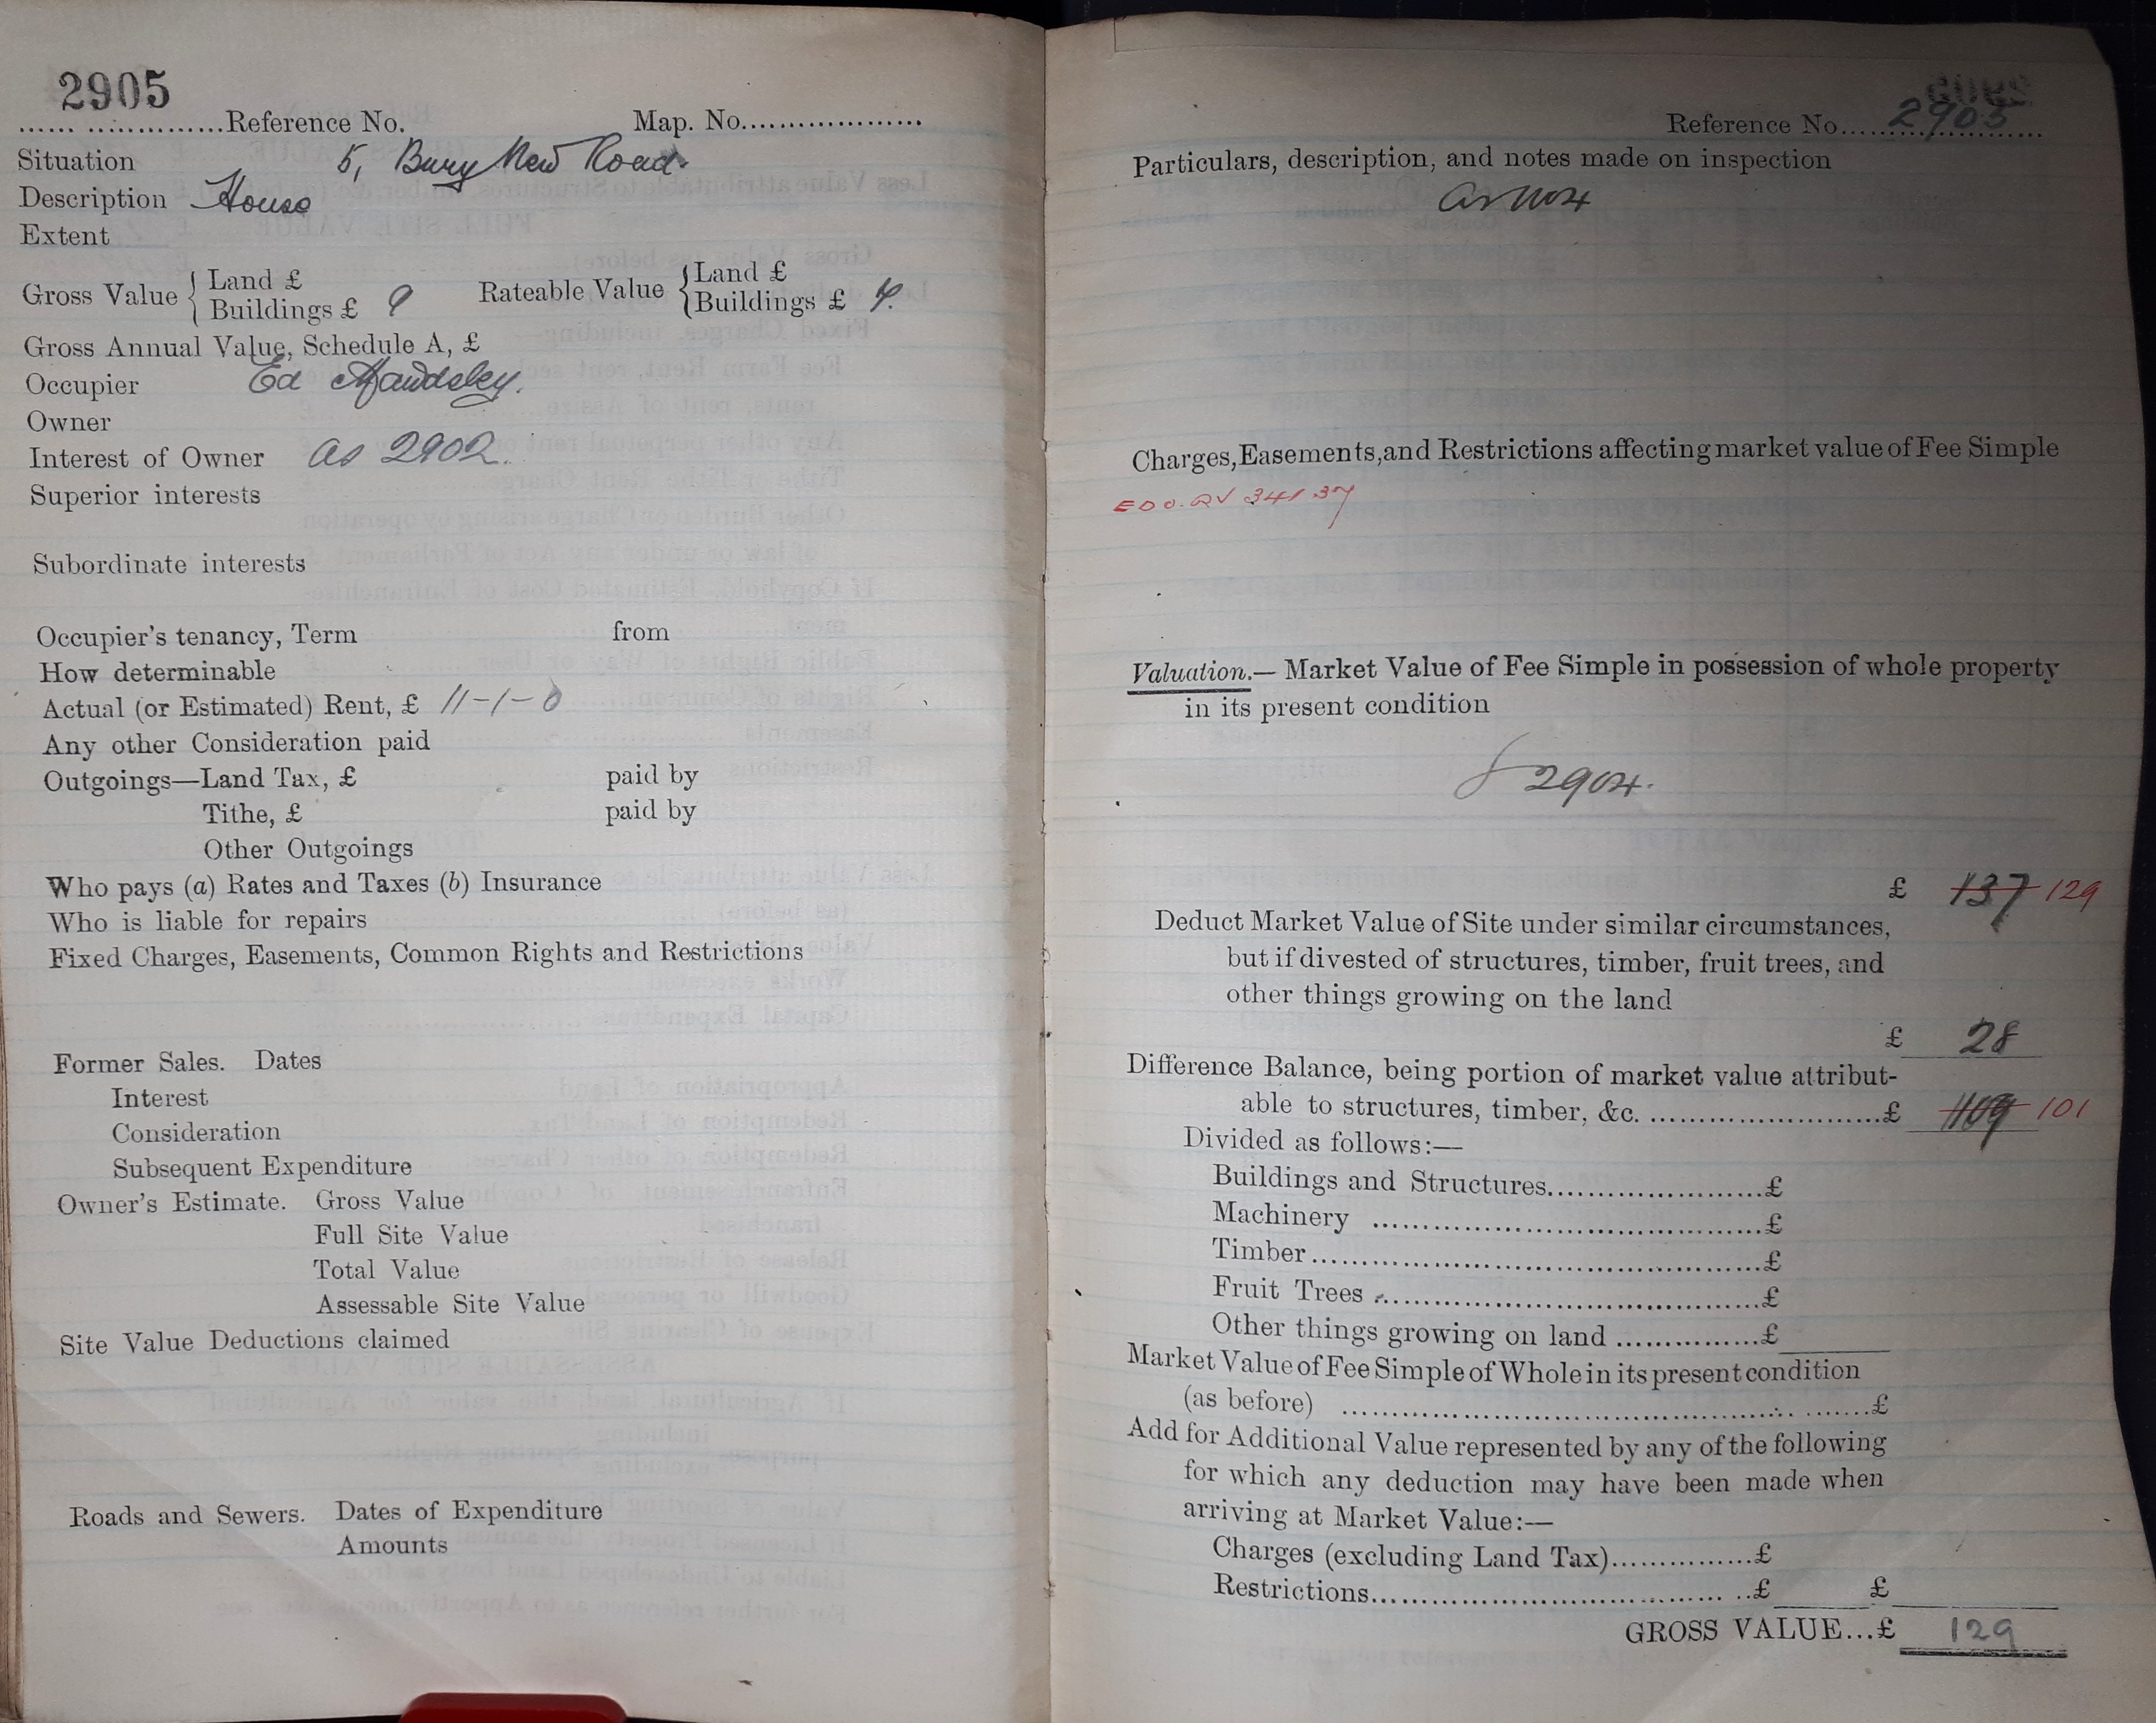 2905
...... ..............Reference No. Map. No....................
Situation 5, Bury New Road.
Description House
Extent
Gross Value { Land £ Rateable Value { Land £
Buildings £ 9 Buildings £ 7.
Gross Annual Value, Schedule A, £
Occupier Ed Mawdsley.
Owner
Interest of Owner as 2902.
Superior interests
Subordinate interests
Occupier's tenancy, Term from
How determinable
Actual (or Estimated) Rent, £ 11-1-0
Any other Consideration paid
Outgoings—Land Tax, £ paid by
Tithe, £ paid by
Other Outgoings
Who pays (a) Rates and Taxes (b) Insurance
Who is liable for repairs
Fixed Charges, Easements, Common Rights and Restrictions
Former Sales. Dates
Interest
Consideration
Subsequent Expenditure
Owner's Estimate. Gross Value
Full Site Value
Total Value
Assessable Site Value
Site Value Deductions claimed
Roads and Sewers. Dates of Expenditure
Amounts
Reference No....2905....
Particulars, description, and notes made on inspection
Charges, Easements, and Restrictions affecting market value of Fee Simple
Valuation.— Market Value of Fee Simple in possession of whole property
in its present condition
2904.
£ 137 129
Deduct Market Value of Site under similar circumstances,
but if divested of structures, timber, fruit trees, and
other things growing on the land
£ 28
Difference Balance, being portion of market value attribut-
able to structures, timber, &c. ..........................£ 109 101
Divided as follows:—
Buildings and Structures........................£
Machinery ..........................................£
Timber.................................................£
Fruit Trees ..........................................£
Other things growing on land ................£
Market Value of Fee Simple of Whole in its present condition
(as before) ..........................................................£
Add for Additional Value represented by any of the following
for which any deduction may have been made when
arriving at Market Value:—
Charges (excluding Land Tax)...............£
Restrictions.........................................£ £
GROSS VALUE...£ 129